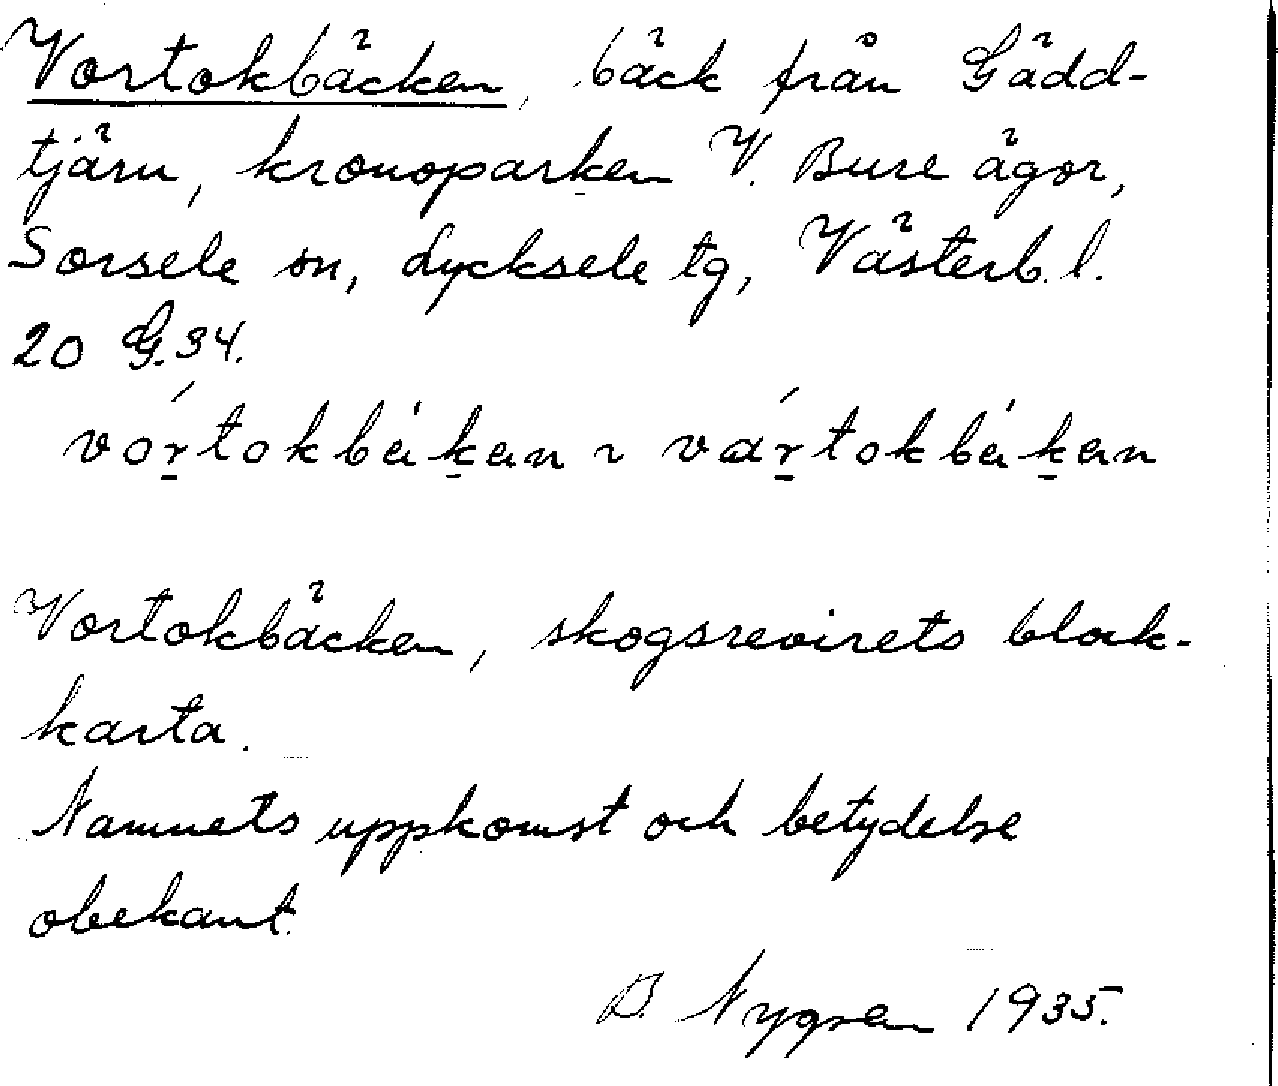 Vortokbäcken, bäck från Gädd-
tjärn, kronoparken V. Bure ägor,
Sorsele sn, Lycksele tg, Västerb. l.
20 G. 34.
vórtokbèkən ~ vártokbèkən
Vortokbäcken, skogsrevirets block-
karta.
Namnets uppkomst och betydelse
obekant.
B. Nygren 1935.